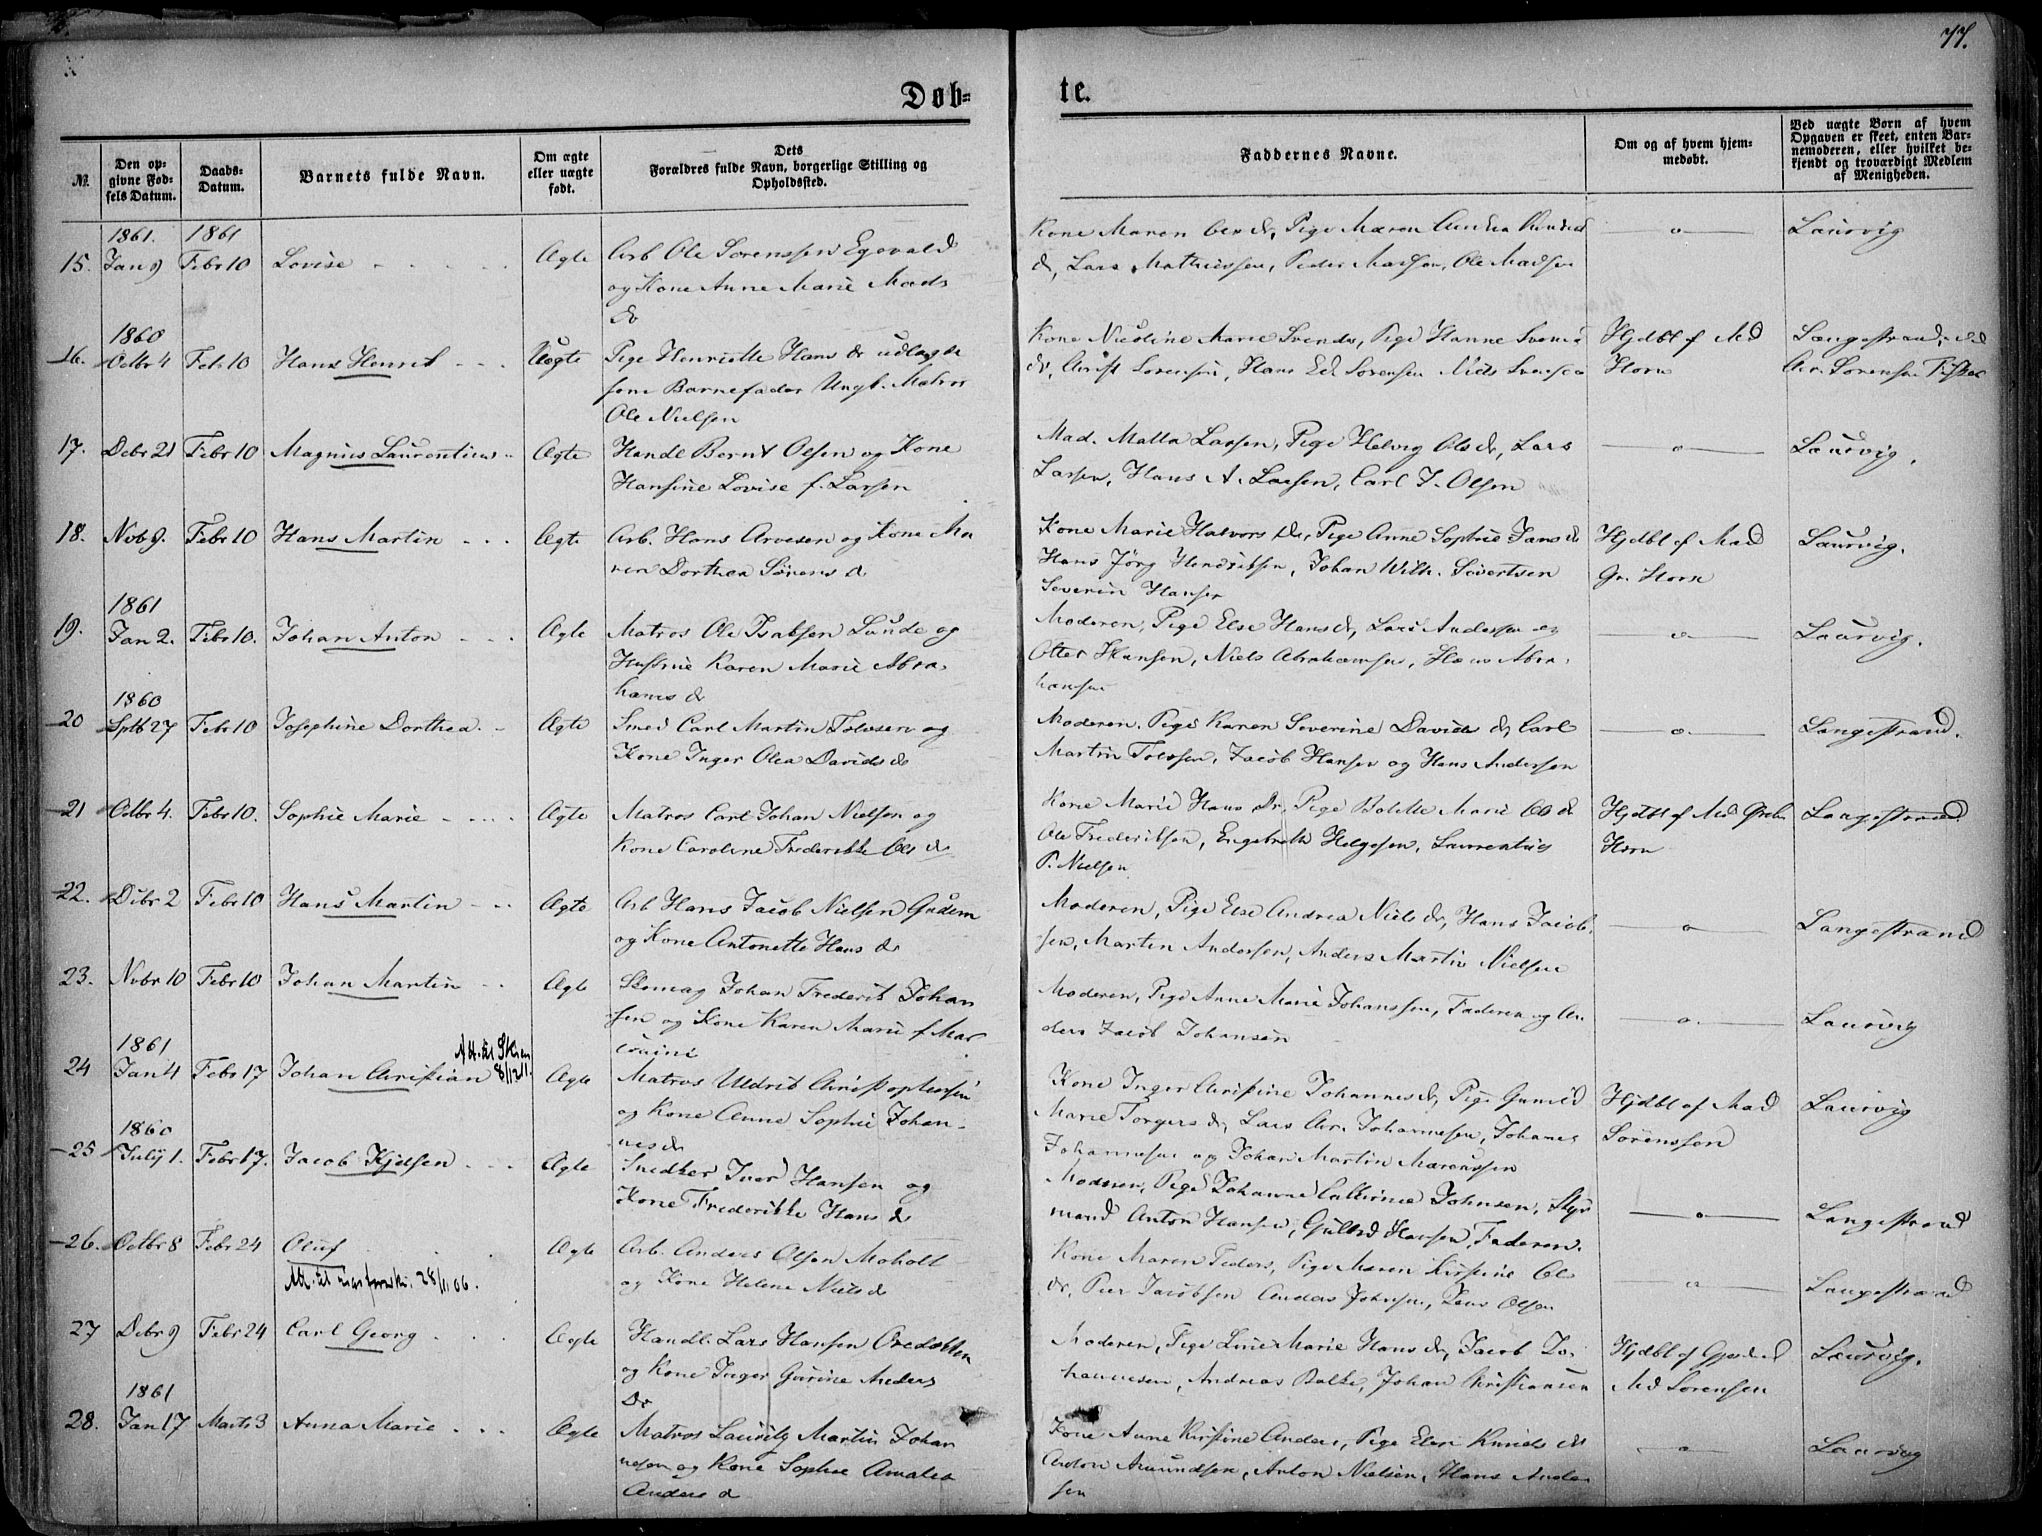 77.
Døb=
te.
№.
Den op-
givne Fød-
sels Datum.
Daabs-
Datum.
Barnets fulde Navn.
Om ægte
eller uægte
født.
Dets
Forældres fulde Navn, borgerlige Stilling og
Opholdssted.
Faddernes Navne.
Om og af hvem hjem-
medøbt.
Ved uægte Børn af hvem
Opgaven er skeet, enten Bar-
nemoderen, eller hvilket be-
kjendt og troværdigt Medlem
af Menigheden.
1861. 1861
15. Jan 9 Febr 10 Lovise Ægte Arb Ole Sørenssen Egevald
og Kone Anne Marie Mads
dr
Kone Maren Ols dr, Pige Maren Andrea
dr, Lars Mathiessen, Peder Madsen, Ole Madsen
Laurvig
1860
16. Octbr 4 Feb 10 Hans Henrik Uægte Pige Henriette Hans dr udlagde
som Barnefader Ungk. Matros
Ole Nielsen
Kone Nicoline Marie Svends, Pige Hanne Svens
dr, Christ Sørensen, Hans Ed. Sørensen Niels Svensen
Hjdbt af Md
Horn
Langestrand,
Chr. Sørensen Fisker
17. Debr 21 Febr 10 Magnus Laurentius Ægte Handl Bernt Olsen og Kone
Hansine Lovise f. Larsen
Mad. Malla Larsen, Pige Helvig Ols dr, Lars
Larsen, Hans A. Larsen, Carl J. Olsen
Laurvig.
18. Nvb 9. Febr 10 Hans Martin Ægte Arb. Hans Arvesen og Kone Ma
ren Dorthea Sørens d
Kone Marie Halvors Dr, Pige Anne Sophie Jans dr
Hans Jörg Hendriksen, Johan Wilh. Sivertsen
Severin Hansen
Hjdbt af Mad
Gr. Horn
Laurvig.
1861
19. Jan 2. Febr 10. Johan Anton Ægte Matros Ole Isaksen Lunde og
Hustrue Karen Marie Abra
hams dr
Moderen, Pige Else Hans dr, Lars Andersen og
Otter Hansen, Niels Abrahamsen, Hans Abra-
hamsen
Laurvig.
1860
20 Sptb 27 Febr 10 Josephine Dorthea Ægte Smed Carl Martin Tolvsen og
Kone Inger Olea Davids dr
Moderen, Pige Karen Severine Davids dr, Carl
Martin Tolvsen, Jacob Hansen og Hans Andersen
Langestrand.
21 Octbr 4. Febr 10. Sophie Marie Ægte Matros Carl Johan Nielsen og
Kone Caroline Frederikke Ols dr
Kone Marie Hans Dr, Pige Bolette Marie Ols dr
Ole Frederiksen, Engebreth Helgesen, Laurentius
P. Nielsen
Hjdbt af Md
Horn
Langestrand.
22. Debr 2 Febr 10 Hans Martin Ægte Arb Hans Jacob Nielsen Gudem
og Kone Antonette Hans dr
Moderen, Pige Else Andrea Niels dr, Hans Jacob-
sen, Martin Andersen, Anders Martin Nielsen
Langestrand
23. Nvbr 10 Febr 10 Johan Martin Ægte Skomag Johan Frederik Johan
sen og Kone Karen Marie f. Mar
Moderen, Pige Anne Marie Johanssen, Faderen og An
ders Jacob Johansen
Laurvig
1861
24 Jan 4 Febr 17 Johan Christian Att. til Skien 8/12 11. Ægte Matros Uldrik Christophersen
og Kone Anne Sophie Johan-
nes dr
Kone Inger Christine Johannes dr, Pige Gunild
Marie Torgers dr, Lars Chr. Johannesen, Johannes
Johannesen og Johan Martin Marcussen
Hjdbt af Mad
Sørenssen
Laurvig
1860
25 July 1. Febr 17. Jacob Kjelsen Ægte Snedker Iver Hansen og
Kone Frederikke Hans dr
Moderen, Pige Johanne Cathrine Johnsen, Styr
mand Anton Hansen, Hansen, Faderen.
Langestrand
26. Octbr 8 Febr 24 Oluf Ægte Arb. Anders Olsen Moholt
og Kone Helene Niels dr
28/11 06.
Kone Maren Peders, Pige Maren Kirstine Ols
dr, Peer Jacobsen Anders Johnsen, Lars Olsen
Langestrand
27 Debr 9 Febr 24 Carl Georg Ægte Handl. Lars Hansen
og Kone Inger Gurine Anders
Dr
Moderen, Pige Line Marie Hans dr, Jacob Jo-
hannesen, Andreas Balke, Johan Christiansen
Hjdbt af
Md Sorensen
Laurvig.
1861
28. Jan 17 Marts 3 Anna Marie Ægte Matros Lauritz Martin Johan
nesen og Kone Sophie Amalea
Anders d
Kone Anne Kirstine Anders, Pige Elen Knuds dr
Anton Amundsen, Anton Nielsen, Hans Ander
sen
Laurvig